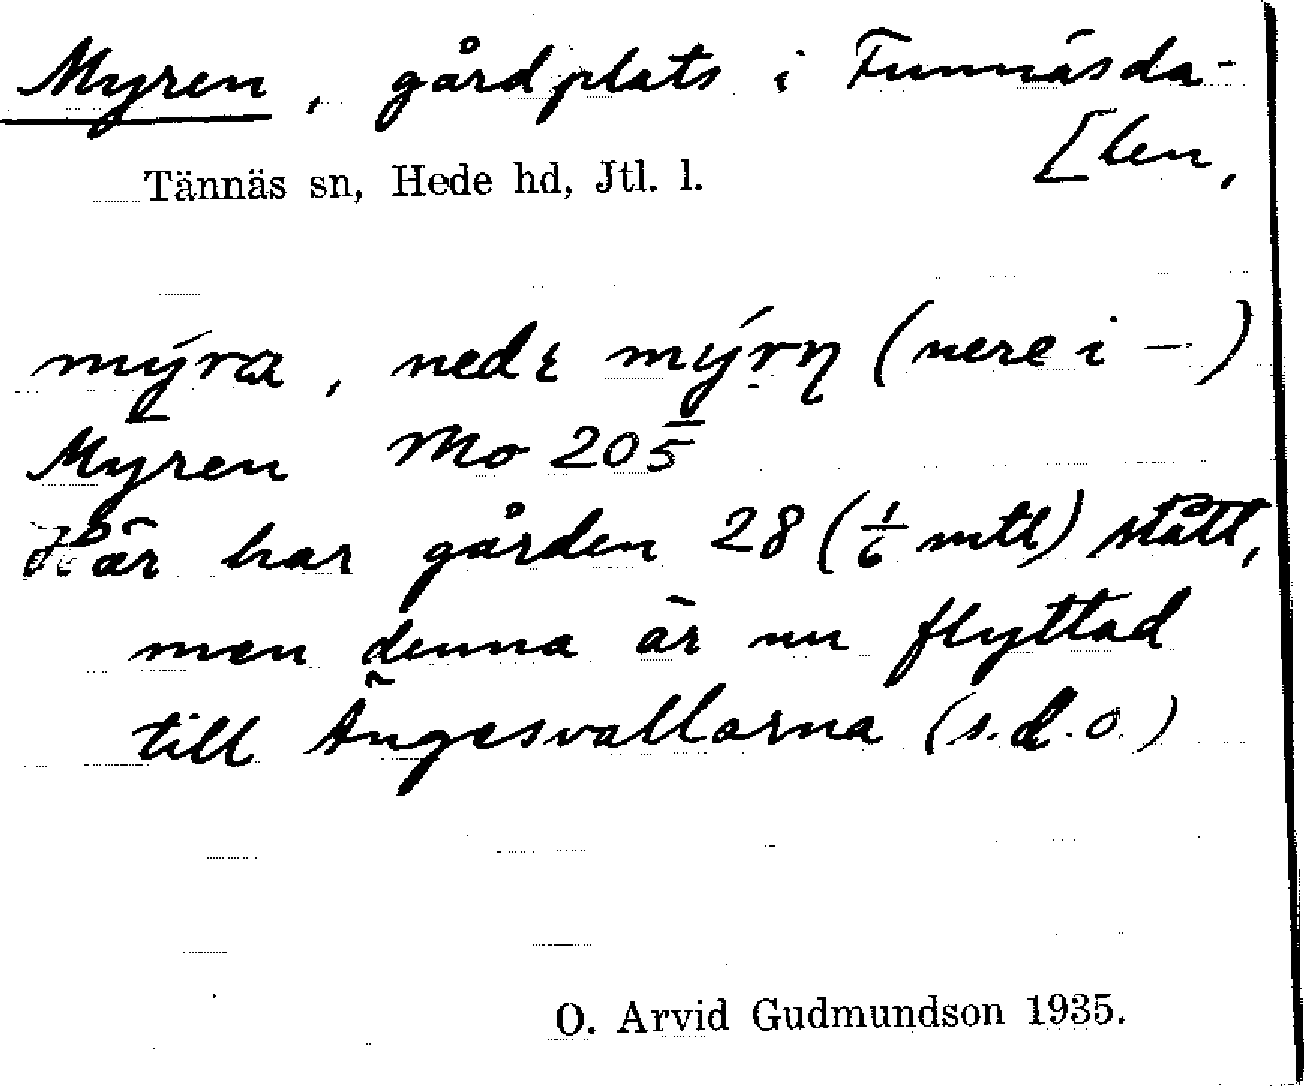 Myren, gårdplats i Funnäsda-
[len,
Tännäs sn, Hede hd, Jtl. l.
mýra, nedɛ mýrn̥ (nere i –)
Myren Mo 205
Här har gården 28 (1/6 mtl) stått,
men denna är nu flyttad
till Ängesvallarna (s.d.o.)
O. Arvid Gudmundson 1935.